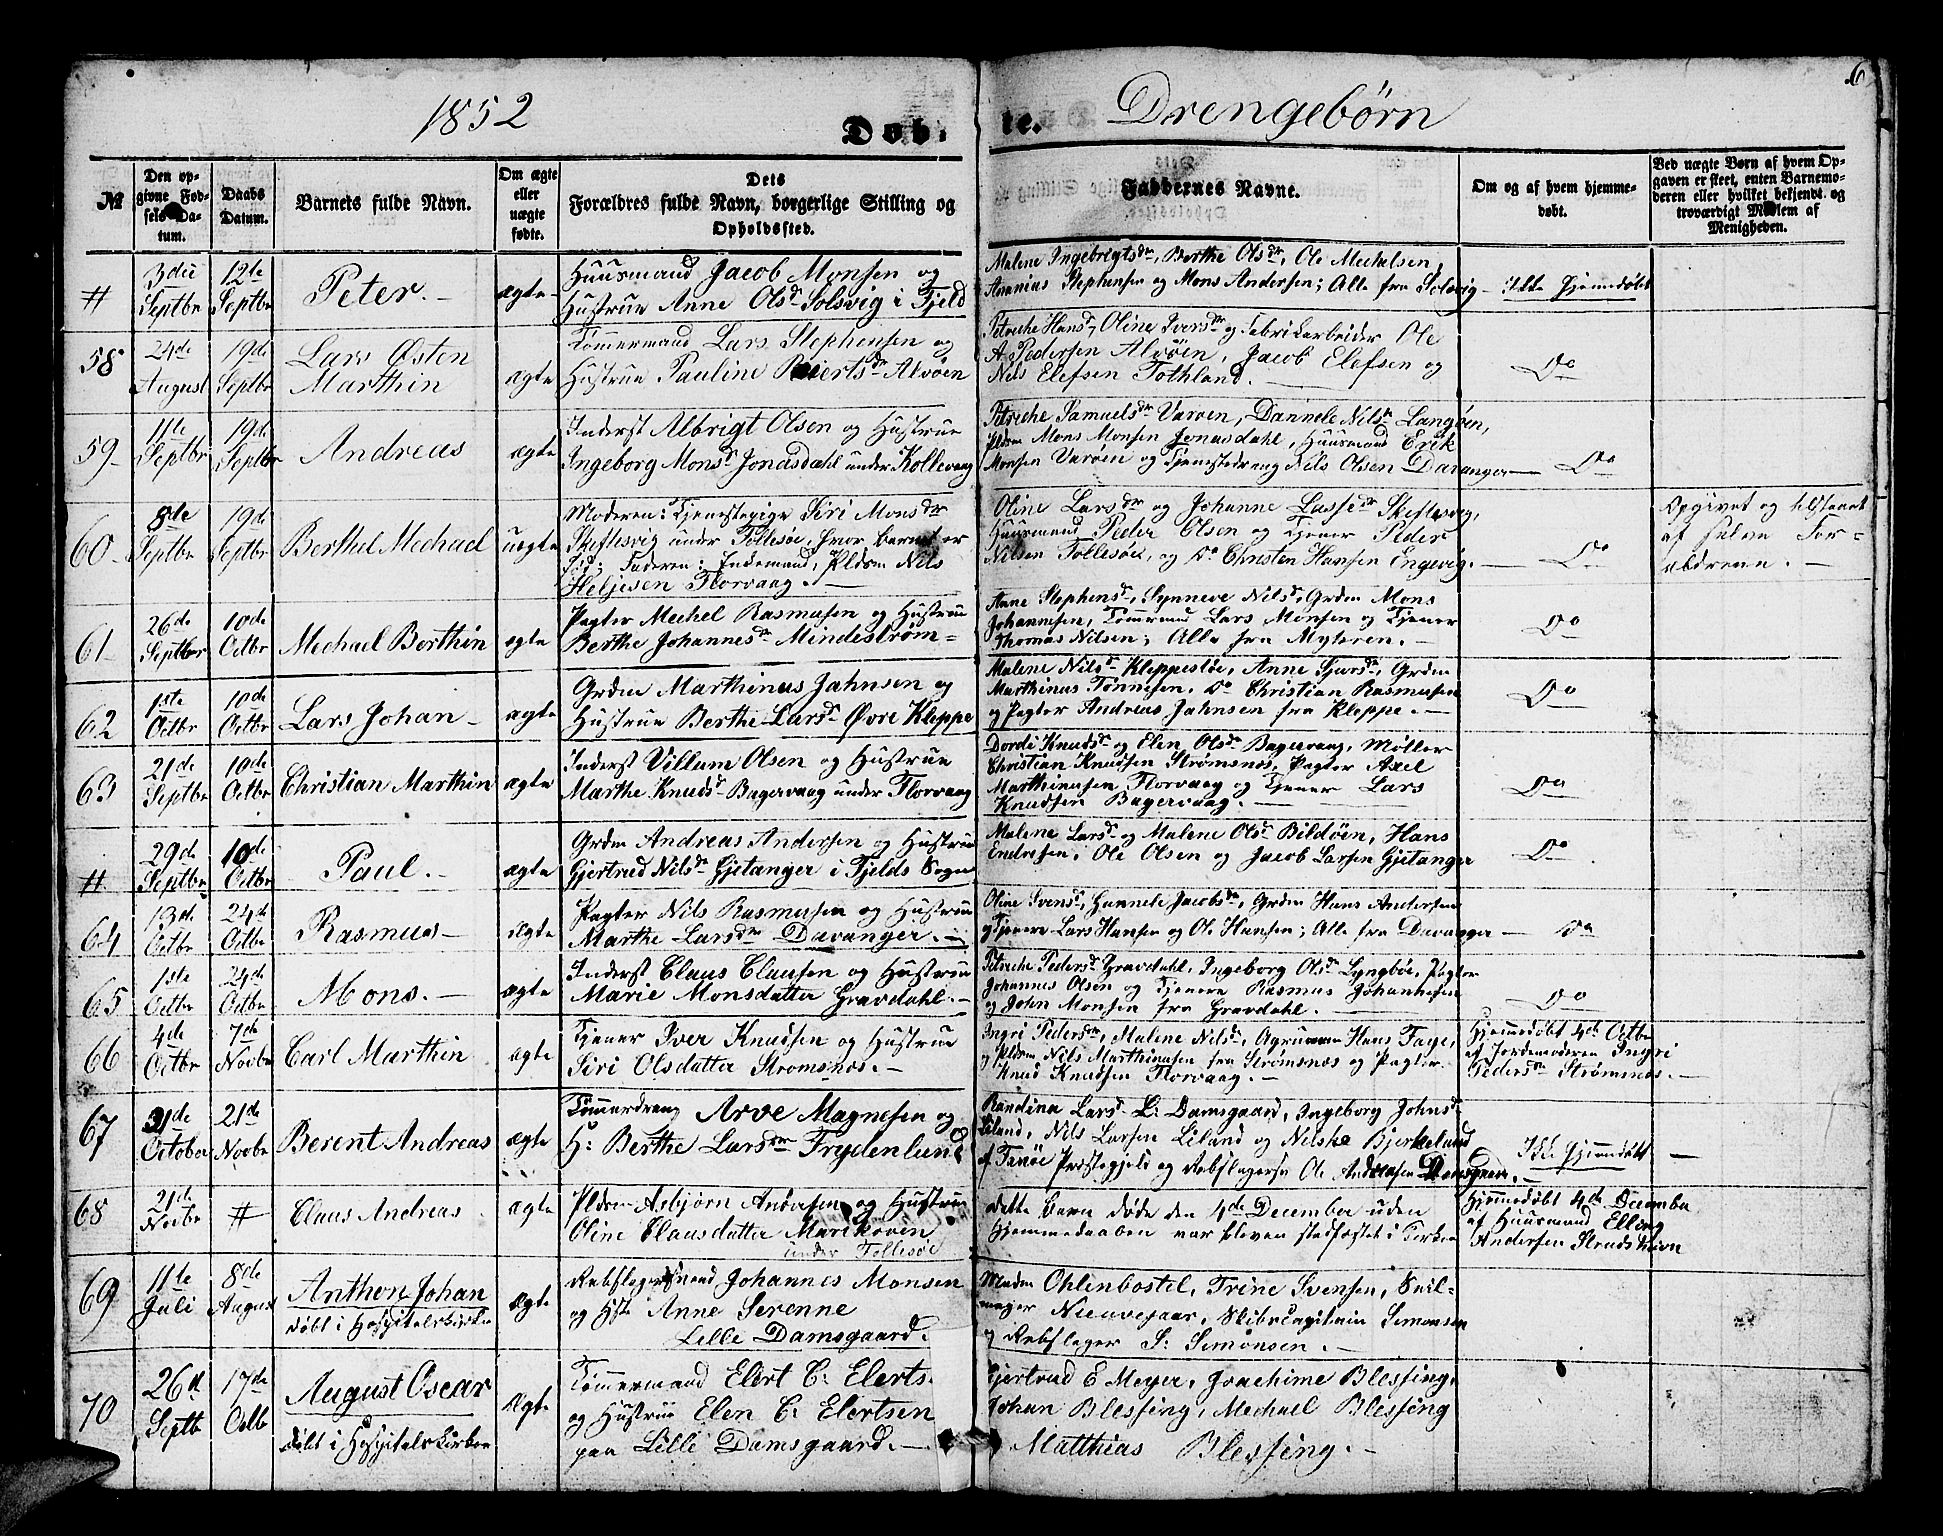 6
1852 Døb- te. Drengebørn
№ | Den opgivne Fødsels Datum. | Daabs Datum. | Barnets fulde Navn. | Om ægte eller uægte fødte. | Dets Forældres fulde Navn, borgerlige Stilling og Opholdssted. | Faddernes Navne. | Om og af hvem hjemmedøbt. | Ved uægte Børn af hvem Opgaven er skeet, enten Barnemoderen eller hvilket bekjendt og troværdigt Medlem af Menigheden.
# | 3die Septbr | 12te Septbr | Peter. | ægte | Huusmand Jacob Monsen og
Hustrue Anne Olsdr Solsvig i Fjeld | Malene Ingebrigtsdr, Berthe Olsdr, Ole Mechelsen,
Ananias Stephensen og Mons Andersen; Alle fra Solsvig | Ikke hjemmedøbt
58 | 24de August | 19de Septbr | Lars Østen
Marthin | ægte | Tømermand Lars Stephensen og
Hustrue Pauline Reiertsdr Alvøen | Petriche Hansd, Oline Iversdr og Fabrikarbeider Ole
A. Pedersen Alvøen, Jacob Elefsen og
Nils Elefsen Tothland. | Do
59 | 11te Septbr | 19de Septbr | Andreas | ægte | Inderst Albrigt Olsen og Hustrue
Ingeborg Monsdr Jonasdahl under Kollevaag | Petriche Samuelsdr Varøen, Dannele Nilsdr Langøen,
Pldsm Mons Monsen Jonasdahl, Huusmand Erik
Monsen Varøen og Tjenestedreng Nils Olsen Davanger | Do
60 | 8de Septbr | 19de Septbr | Berthel Mechael | uægte | Moderen: Tjenestepige Siri Monsdr
Skiftesvig under Follesøe, hvor barnet er
fød; Faderen: Indemand, Pldsm Nils
Heljesen Florvaag. | Oline Larsdr og Johanne Lassedr Skiftesvig,
Huusmand Peder Olsen og Tjener Peder
Nilsen Follesøe, og Do Christen Hansen Engevig. | Do | Opgivet og tilstaaet
af selve For-
ældrene.
61 | 26de Septbr | 10de Octbr | Mechael Berthin | ægte | Pagter Mechel Rasmusen og Hustrue
Berthe Johannesdr Mindestrøm | Anne Stephensd, Synneve Nilsd, Grdm Mons
Johannesen, Tømrmd Lars Monsen og Tjener
Thomas Nilsen; Alle fra Myteren. | Do
62 | 1ste Octbr | 10de Octbr | Lars Johan | ægte | Grdm Marthinus Jahnsen og
Hustrue Berthe Larsdr Øvre Kleppe | Malene Nilsdr Kleppestøe, Anne Sjursdr, Grdm
Marthinus Tønnesen, Do Christian Rasmusen
og Pagter Andreas Jahnsen fra Kleppe. | Do
63 | 21de Septbr | 10de Octbr | Christian Marthin | ægte | Inderst Villum Olsen og Hustrue
Marthe Knudsdr Bagervaag under Florvaag | Dordi Knudsdr og Elen Olsdr Bagervaag, Møller
Christian Knudsen Strømsnes, Pagter Axel
Marthinusen Florvaag og Tjener Lars
Knudsen Bagervaag. | Do
# | 29de Septbr | 10de Octbr | Paul. | ægte | Grdm Andreas Andersen og Hustrue
Gjertrud Nilsdr Gjetanger i Fjelds Sogn | Malene Larsd og Malene Olsd Bildøen, Hans
Endresen, Ole Olsen og Jacob Larsen Gjetanger | Do
64 | 13de Octbr | 24de Octbr | Rasmus | ægte | Pagter Nils Rasmusen og Hustrue
Marthe Larsdr Davanger. | Oline Svensd, Hannele Jacobsdr, Grdm Hans Andersen
og Tjenere Lars Hansen og Ole Hansen; Alle fra Davanger | Do
65 | 1ste Octbr | 24de Octbr | Mons. | ægte | Inderst Claus Clausen og Hustrue
Marie Monsdatter Gravdahl. | Petriche Pedersdr Gravdahl, Ingeborg Olsdr Lyngbøe, Pagter
Johannes Olsen og Tjenere Rasmus Johannesen
og John Monsen fra Gravdahl. | Do
66 | 4de Octbr | 7de Novbr | Carl Marthin | ægte | Tjener Iver Knudsen og Hustrue
Siri Olsdatter Stromsnes. | Ingri Pedersdr, Malene Nilsd, Hans Faye,
og Pldsm Nils Marthinusen fra Strømsnes og Pagter
Knud Knudsen Florvaag. | Hjemmedøbt 4de Octbr
af Jordemoderen Ingri
Pedersdr Strømsnes.
67 | 31de October | 21de Novbr | Berent Andreas | ægte | Tømmerdreng Arve Magnesen og
H: Berthe Larsdr Frydenlund | Randina Larsd L: Damsgaard, Ingeborg Johnsd
Liland, Nils Larsen Liland og Nilske Bjerkelund
af Fanøe Præstegjeld og Rebslagersv Ole Andreasen Damsgaard. | Ikke hjemmedøbt
68 | 21de Novbr | # | Claus Andreas | ægte | Pldsm Asbjørn Andersen og Hustrue
Oline Clausdatter Marikoven
under Follesøe | Dette barn døde den 4de December uden
Hjemmedaaben var bleven stadfæstet i Kirken | Hjemmedøbt 4de December
af Huusmand Elling
Andersen Strudshavn
69 | 11te Juli | 8de August | Anthon Johan
døbt i Hospitalskirken | ægte | Rebslagersvend Johannes Monsen
og Hst Anne Serenne
Lille Damsgaard. | Madm Ohlenbostel, Trine Svensen, Seil-
mager Nieuvejaar, Skibscapitain Simonsen
og Rebslager S: Simonsen.
70 | 26d Septb | 17de Octb | August Oscar
døbt i Hospitalskirken | ægte | Tømmermand Elert C: Elerts.
og Hustrue Elen C: Elertsen
paa Lille Damsgaard. | Gjertrud E Meyer, Joachime Blessing,
Johan Blessing, Mechael Blessing
Matthias Blessing.